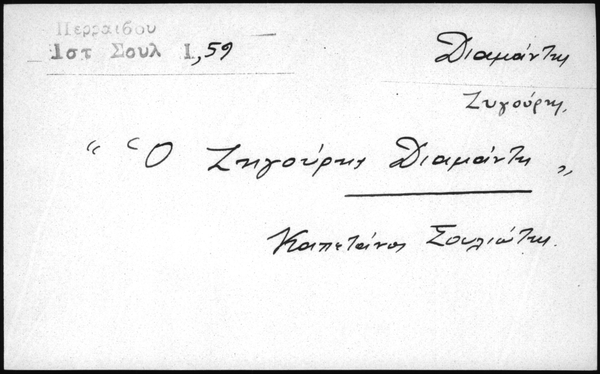 Περραιδου
Ιστ Σουλ Ι,59
Διαμάντης
Ζυγούρης.
“ Ὁ Ζηγούρης Διαμάντη „
Καπετάνος Σουλιώτης.